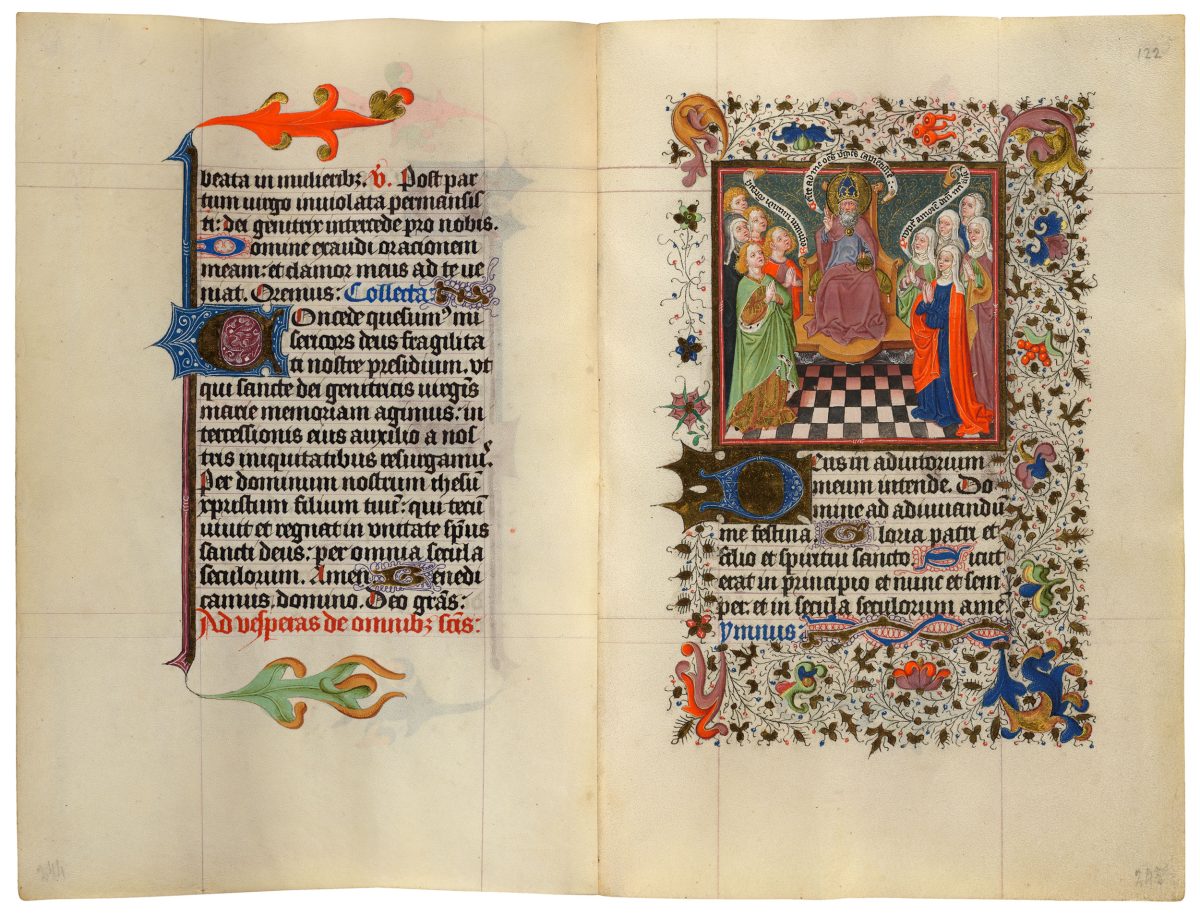 beata in mulieribꝫ. v̄. Post par
tum virgo inviolata permansis
ti: dei genitrix intercede pro nobis.
Domine exaudi orationem
meam: et clamor meus ad te ve
niat. Oremus: Collecta:
Concede quesumꝰ mi
sericors deus fragilita
ti nostre presidium. vt
qui sancte dei genitricis virgīs
marie memoriam agimus: in
tercessionis eius auxilio a nos
tris iniquitatibus resurgamꝰ.
Per dominum nostrum ihesū
xpristum filium tuū: qui tecū
vivit et regnat in vnitate spūs
sancti deus: per omnia secula
seculorum. Amen Benedi
camus domino. Deo gr̄as:
Ad vesperas de omnibꝫ scīs:
122
ad me oēs
amorē
Deus in adiutorium
meum intende. Do
mine ad adiuvandū
me festina. Gloria patri et
filio et spiritui sancto. Sicut
erat in principio et nunc et sem
per: et in secula seculorum amē
ymnus:
244
243